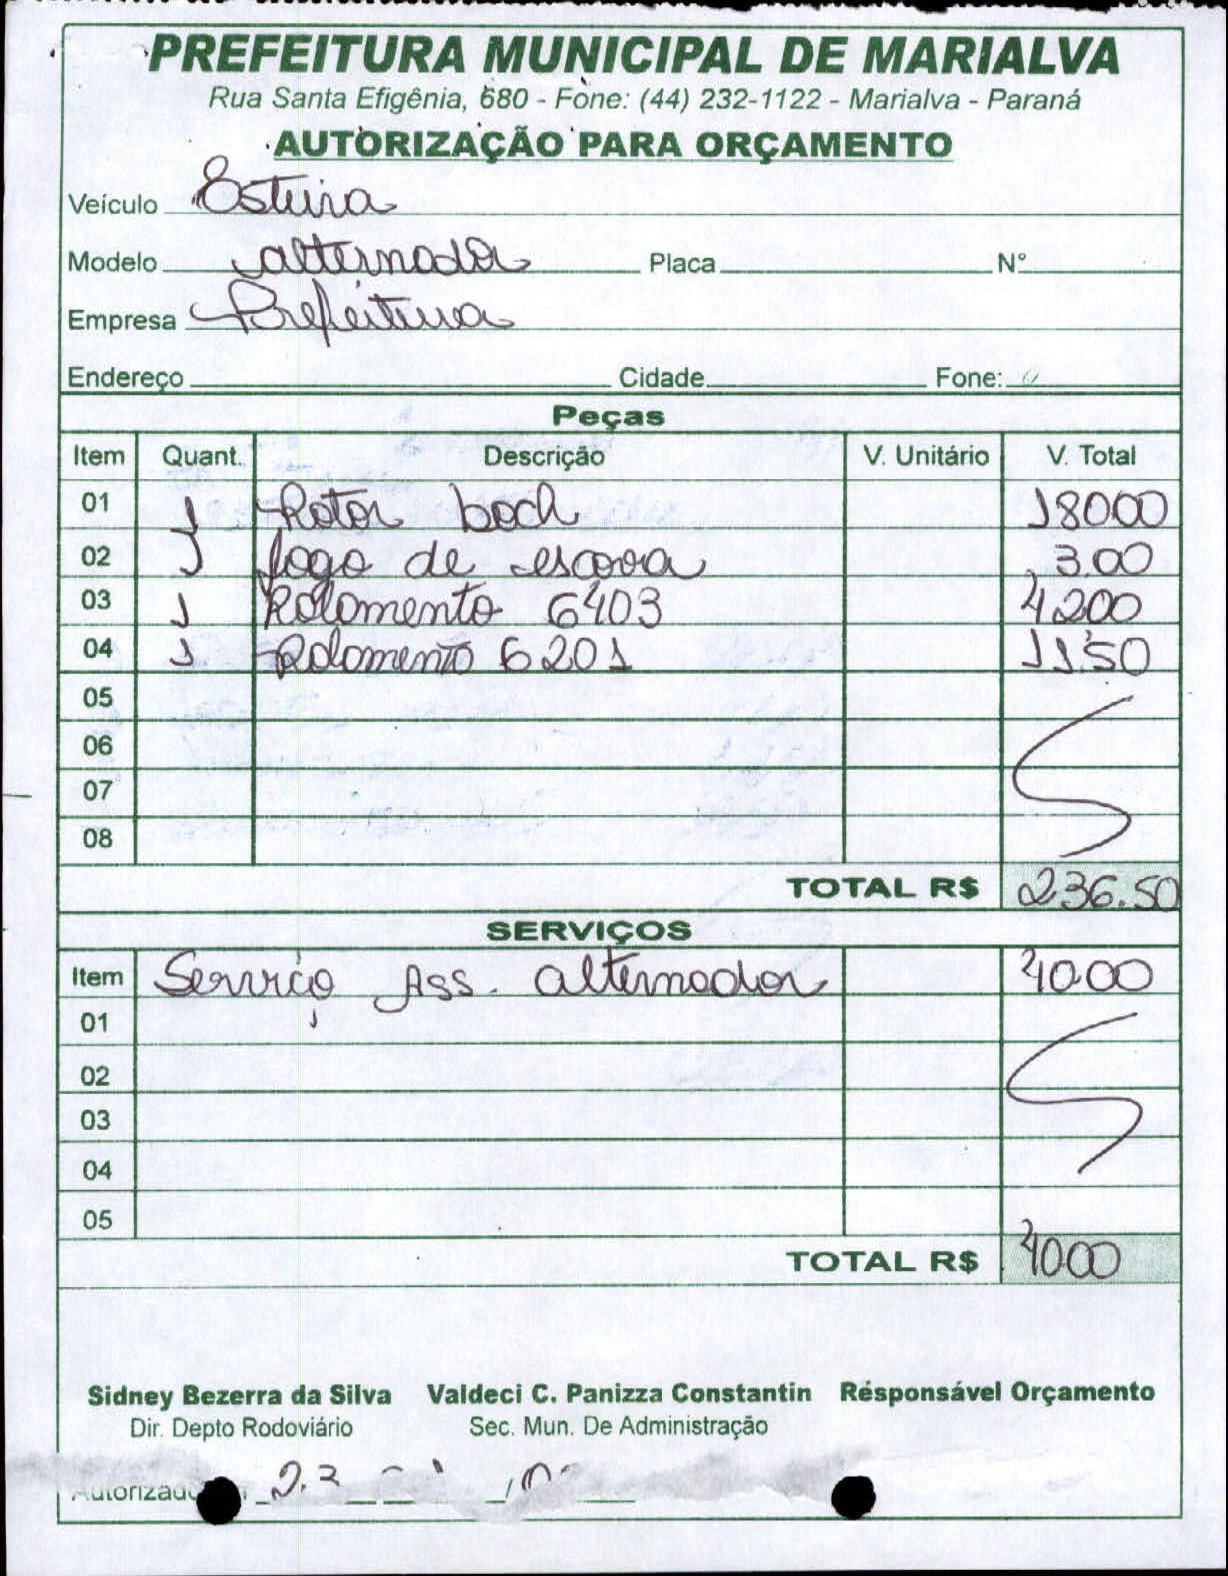 PREFEITURA MUNICIPAL DE MARIALVA
Rua Santa Efigênia, 680 - Fone: (44) 232-1122 - Marialva - Paraná
AUTORIZAÇÃO PARA ORÇAMENTO
Veículo Esteira
Modelo alternador Placa N°
Empresa Prefeitura
Endereço Cidade Fone:
Peças
Item Quant. Descrição V. Unitário V. Total
01 1 Rotor boch 18000
02 1 Jogo de escova 3.00
03 1 Rolamento 6403 4200
04 1 Rolamento 6201 11.50
05
06
07
08
TOTAL R$ 236.50
SERVIÇOS
Item Serviço Ass. alternador 4000
01
02
03
04
05
TOTAL R$ 4000
Sidney Bezerra da Silva Valdeci C. Panizza Constantin Responsável Orçamento
Dir. Depto Rodoviário Sec. Mun. De Administração